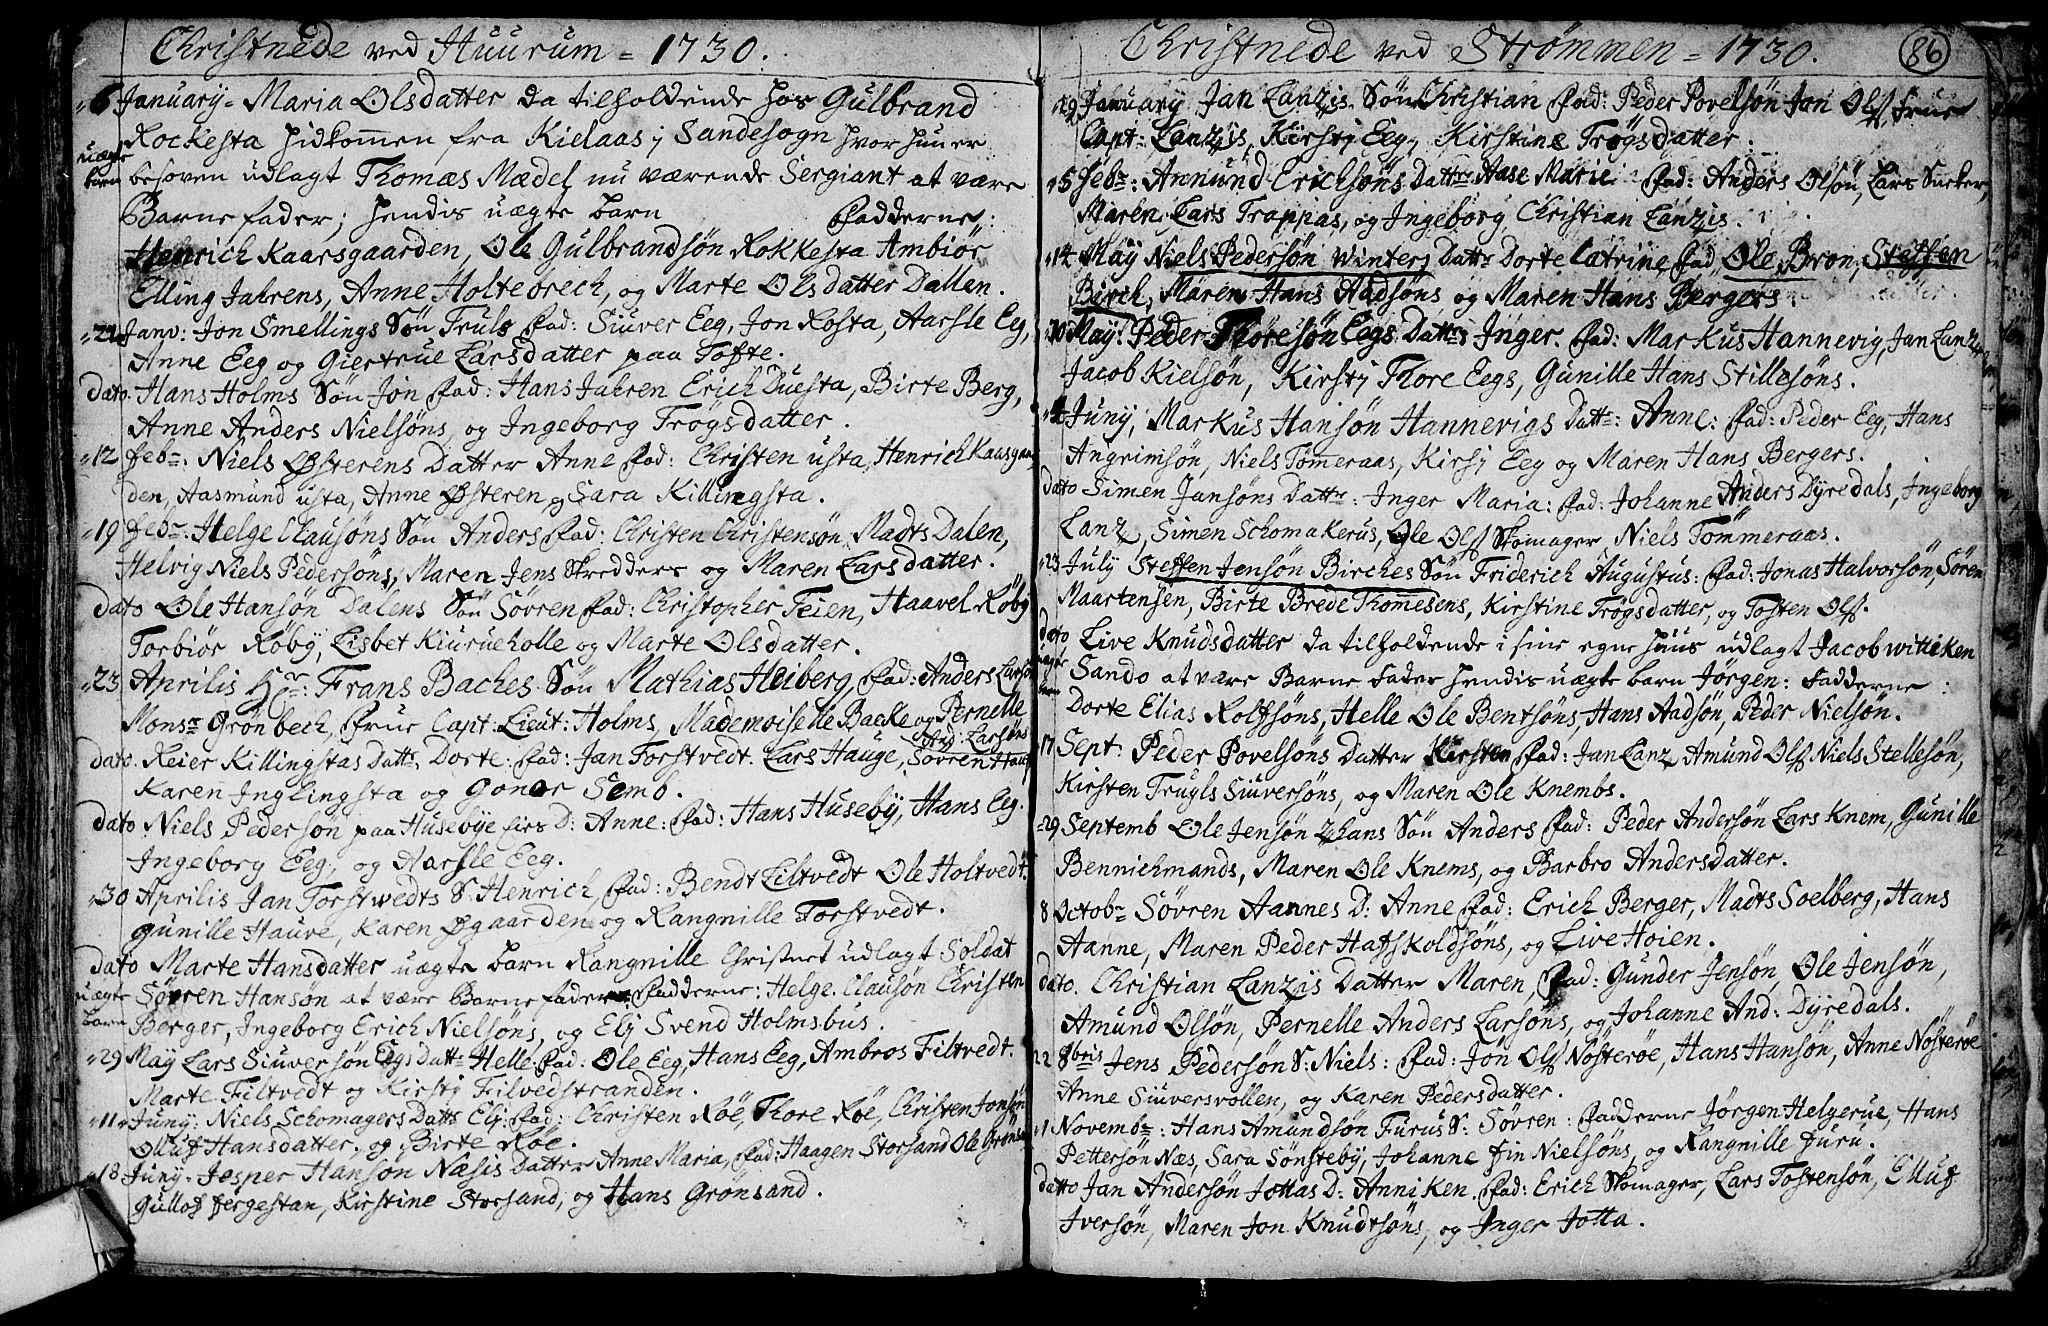 Christnede ved Huurum = 1730.
6 January = Maria Olsdatter da tilholdende hos Gulbrand
Rockesta hidkommen fra Kielaas j Sandesogn hvor hun er
uægte barn
besoven udlagt Thomas Mædel nu værende Sergiant at være
Barne fader; hendis uægte barn Fadderne:
Henrich Kaarsgaarden, Ole Gulbrandsøn Rokkesta Ambiør
Elling Jahrens, Anne Holtebrech, og Marte Olsdatter Dallen.
22 Janv: Jon Smellings Søn Truls Fad: Siuver Eeg, Jon Rosta, Aarsle Eeg,
Anne Eeg og Giertrue Larsdatter paa Tofte.
dato. Hans Holms Søn Jon Fad: Hans Jahren Erich Duesta, Birte Berg,
Anne Anders Nielsøns, og Ingeborg Trøgsdatter.
12 Feb: Niels Østerens Datter Anne Fad: Christen usta, Henrich Kaasgaar
den, Aasmund usta, Anne Østeren og Sara Killingsta.
19 Feb: Helge Clausøns Søn Anders Fad: Christen Christensøn, Madts Dalen,
Helvig Niels Pedersøns, Maren Jens Skredders og Maren Larsdatter.
dato Ole Hansøn Dalens Søn Søvren Fad: Christopher Teien, Haavel Røby
Torbiør Røby, Lisbet Kiurueholle og Marte Olsdatter.
23 Aprilis Hr: Frans Baches Søn Mathias Heiberg, Fad: Anders Larsøn
Monsr Grønbech, Frue Capt: Lieut: Holms, Mademoiselle Backe og Pernelle
And: Larsøns
dato. Reier Killingstas Dattr Dorte. Fad: Jan Torstvedt. Lars Hauge, Søvren Hauf
Karen Inglingsta og Gonor Semb.
dato Niels Pedersøn paa Husebye fiers D: Anne: Fad: Hans Huseby, Hans Eeg.
Ingeborg Eeg, og Aarsle Eeg.
30 Aprilis Jan Torstwedts S: Henrich, Fad: Bendt Liltvedt Ole Holtvedt.
Gunille Hauve, Karen Øgaarden og Rangnille Torstvedt.
dato Marte Hansdatter uægte barn Rangnille Christnet udlagt Soldat
uægte barn
Søvren Hansøn at være Barne fader Fadderne: Helge Clausøn Christen
Berger, Ingeborg Erich Nielsøns, og Elj Svend Holmsbus.
29 May Lars Siuversøn Eegs Dattr Helle Fad: Ole Eeg, Hans Eeg, Ambros Filtvedt.
Marte Filtvedt og Kirsty Filvedstranden.
11 Juny: Niels Schomagers Dattr Elj: Fad: Christen Røe, Thore Røe, Christen Jonsøn
Olluf Hansdatter, og Birte Røe.
18 Juny. Jesper Hansøn Næsis Datter Anne Maria, Fad: Haagen Storsand Ole Grønsand
Gullof Jergestan, Kirstine Storsand, og Hans Grønsand.
Christnede ved Strømmen = 1730. 86
29 January Jan Lanzis Søn Christian Fad: Peder Povelsøn Jon Ols, Frue
Capt: Lanzis, Kirstj Eeg, Kirstine Trøgsdatter.
5 Febr: Annund Erichsøns Dattr Aase Marie Fad: Anders Olsøn, Lars Sncker,
Maren Lars Trappias, og Ingeborg Christian Lanzis.
14 May Niels Pedersøn Winters Dattr Dorte Catrine Fad Ole Bron, Steffen
Birch, Maren Hans Aadsøns og Maren Hans Bergers
30 May: Peder Thoresøn Eegs Dattr Inger. Fad: Markus Hannevig, Jan Lanz
Jacob Kielsøn, Kirstj Thore Eegs, Gunille Hans Stillesøns.
4 Juny, Markus Hansøn Hannevigs Dattr: Anne: Fad: Peder Eeg, Hans
Angrimsøn, Niels Tømeraas, Kirsj Eeg og Maren Hans Bergers.
dato Simen Jansøns Dattr: Inger Maria: Fad: Johanne Anders Dyredals, Ingeborg
Lanz, Simen Schomakerus, Ole Ols Skomager Niels Tømmeraas.
23 July Steffen Jensøn Birches Søn Friderich Augustus: Fad: Jonas Halvorsøn, Søren
Maartensen, Birte Brede Thomesens, Kirstine Trøgsdatter, og Tosten Ols.
dato Live Knudsdatter da tilholdende i sine egne huus udlagt Jacob Wittiken
uægte barn
Sando at være Barne fader hendis uægte barn Jørgen: Fadderne:
Dorte Elias Rolfsøns, Helle Ole Bentsøns, Hans Aadsøn, Peder Nielsøn.
17 Sept: Peder Povelsøns Datter Kirsten Fad: Jan Lanz Amund Ols Niels Stellesøn,
Kirsten Trugls Siuversøns, og Maren Ole Knembs.
29 Septemb Ole Jensøn Zhans Søn Anders Fad: Peder Andersøn Lars Knem, Gunille
Bennichmands, Maren Ole Knems, og Barbro Andersdatter.
8 Octobr Søvren Aannes D: Anne Fad: Erich Berger, Madts Soelberg, Hans
Aanne, Maren Peder Hafskoldsøns, og Live Høien.
dato. Christian Lanzis Datter Maren, Fad: Gunder Jensøn, Ole Jensøn,
Amund Olsøn, Pernelle Anders Larsøns, og Johanne And: Dyredals.
22 8bris Jens Pedersøn S: Niels: Fad: Jon Ols Nøsterøe, Hans Hansøn, Anne Nøsterøe
Anne Siuversvollen, og Karen Pedersdatter.
1 Novembr: Hans Amundsøn Furus S: Søvren: Fadderne Jørgen Helgerue, Hans
Pettersøn Næs, Sara Sønsteby, Johanne Fin Nielsøns, og Rangnille Furu.
datto Jan Andersøn Jottas D: Anniken. Fad: Erich Skomager, Lars Tostensøn, Elluf
Iversøn, Maren Jon Knudtsøns, og Inger Jotta.